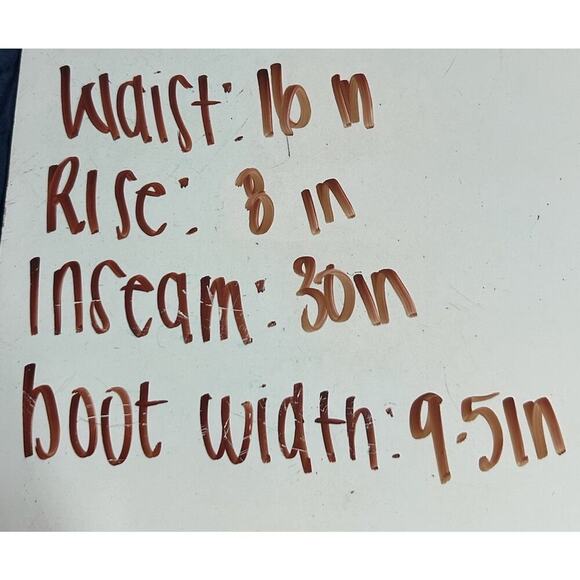 Waist: 16 in
Rise: 8 in
Inseam: 30in
boot width: 9.5in